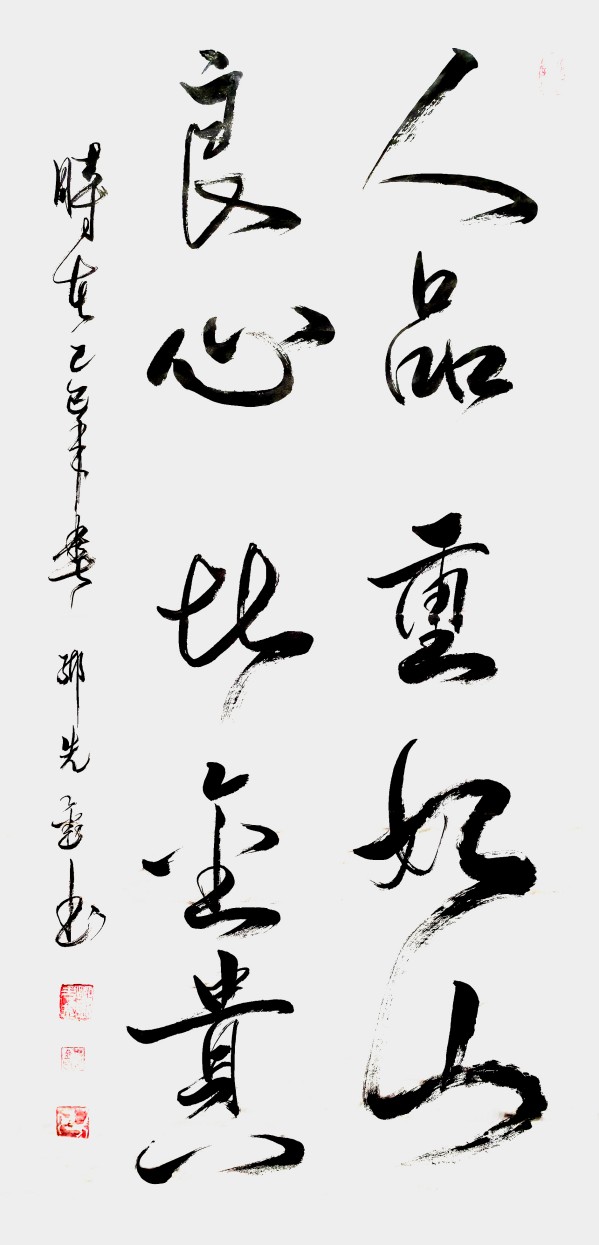 人品重如山
良心比金貴
時在乙巳年春 鄉先金書